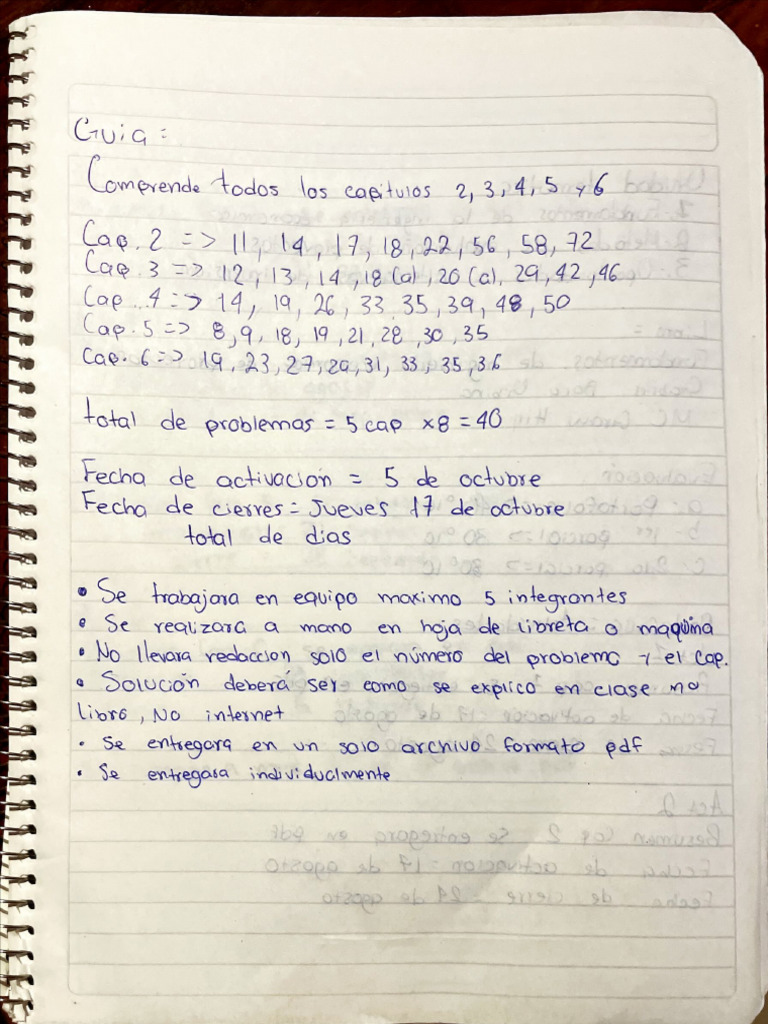 Guia:
Comprende todos los capitulos 2, 3, 4, 5 y 6
Cap. 2 => 11, 14, 17, 18, 22, 56, 58, 72
Cap. 3 => 12, 13, 14, 18 (a), 20 (a), 29, 42, 46
Cap. 4 => 14, 19, 26, 33 35, 39, 48, 50
Cap. 5 => 8, 9, 18, 19, 21, 28, 30, 35
Cap. 6 => 19, 23, 27, 29, 31, 33, 35, 36
total de problemas = 5 cap x 8 = 40
Fecha de activación = 5 de octubre
Fecha de cierres = Jueves 17 de octubre
total de dias
• Se trabajara en equipo maximo 5 integrantes
• Se realizara a mano en hoja de libreta o maquina
• No llevara redaccion solo el número del problema y el cap.
• Solución deberá ser como se explico en clase no
libro, No internet
• Se entregara en un solo archivo formato pdf
• Se entregara individualmente